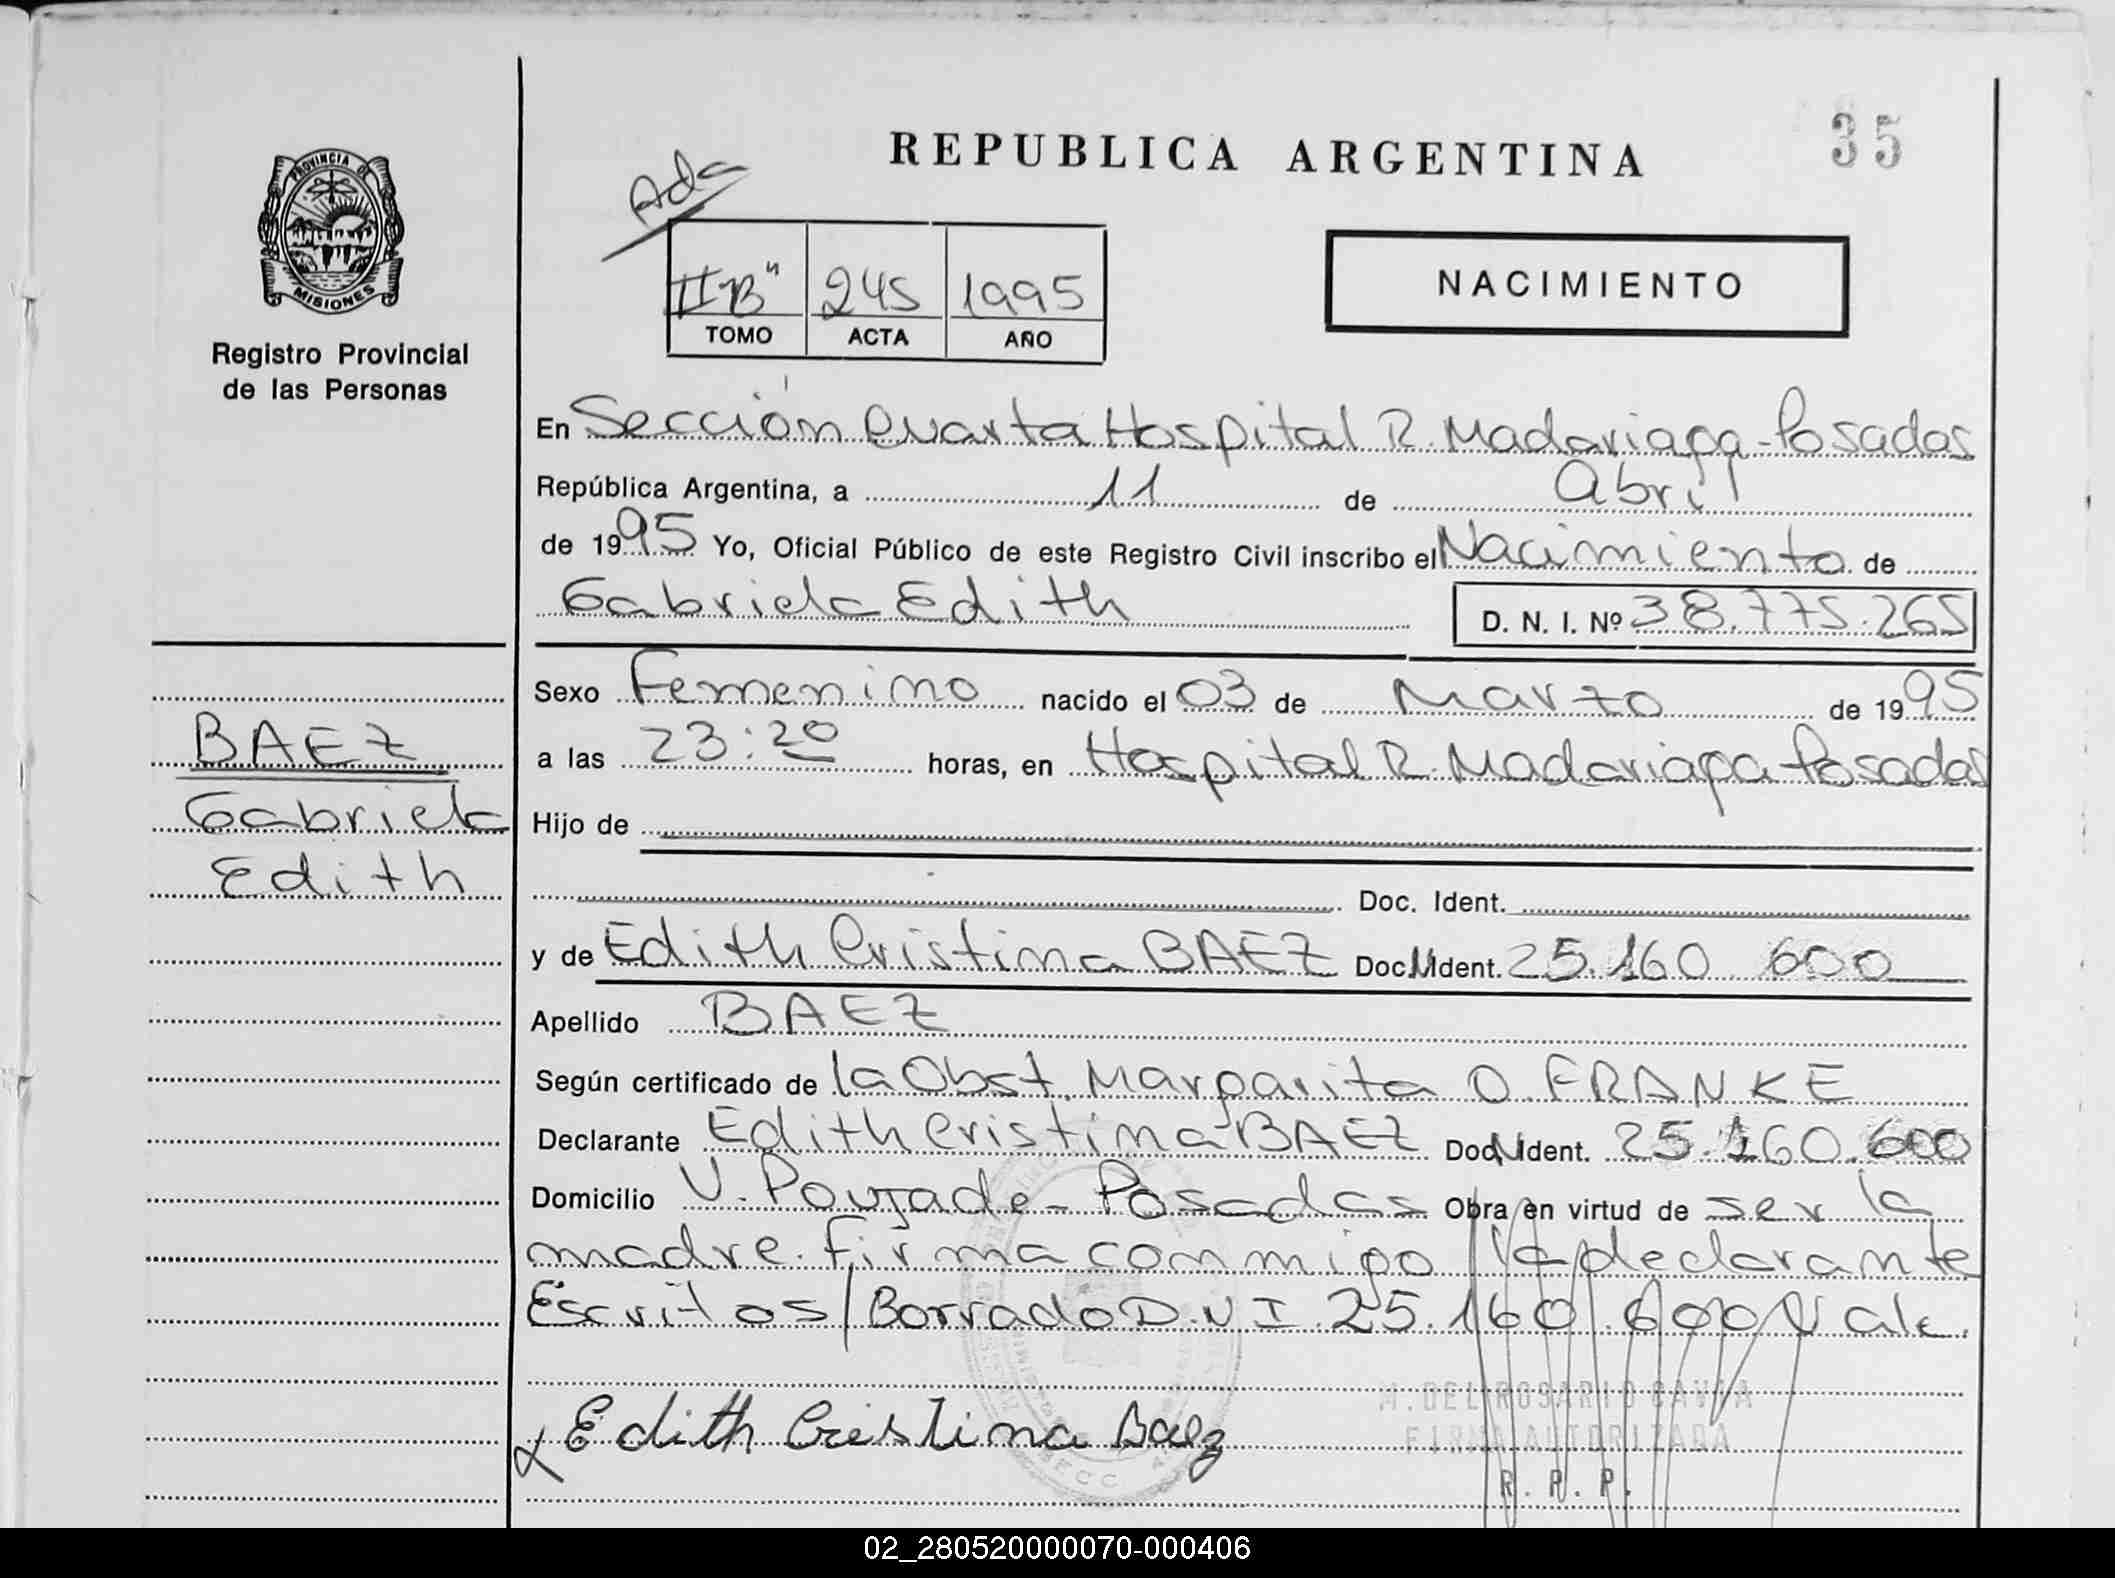 REPUBLICA ARGENTINA
35
PROVINCIA DE
MISIONES
Registro Provincial
de las Personas
Ada
II "B" 245 1995
TOMO ACTA AÑO
NACIMIENTO
En Sección Cuarta Hospital R. Madariaga-Posadas
República Argentina, a 11 de Abril
de 1995 Yo, Oficial Público de este Registro Civil inscribo el Nacimiento de
Gabriela Edith D. N. I. Nº 38.775.265
Sexo Femenino nacido el 03 de Marzo de 1995
a las 23:20 horas, en Hospital R. Madariaga Posadas
Hijo de
Doc. Ident.
y de Edith Cristina BAEZ Doc.Ident. 25.160 600
Apellido BAEZ
Según certificado de la Obst. Margarita O. FRANKE
Declarante Edith Cristina BAEZ Doc.Ident. 25.160.600
Domicilio V. Poujade - Posadas Obra en virtud de ser la
madre. Firma conmigo la declarante
Escritos/Borrado D.N.I. 25.160.600 Vale.
BAEZ
Gabriela
Edith
Edith Cristina Baez
M. DEL ROSARIO
FIRMA AUTORIZADA
R. P. P.
02_280520000070-000406